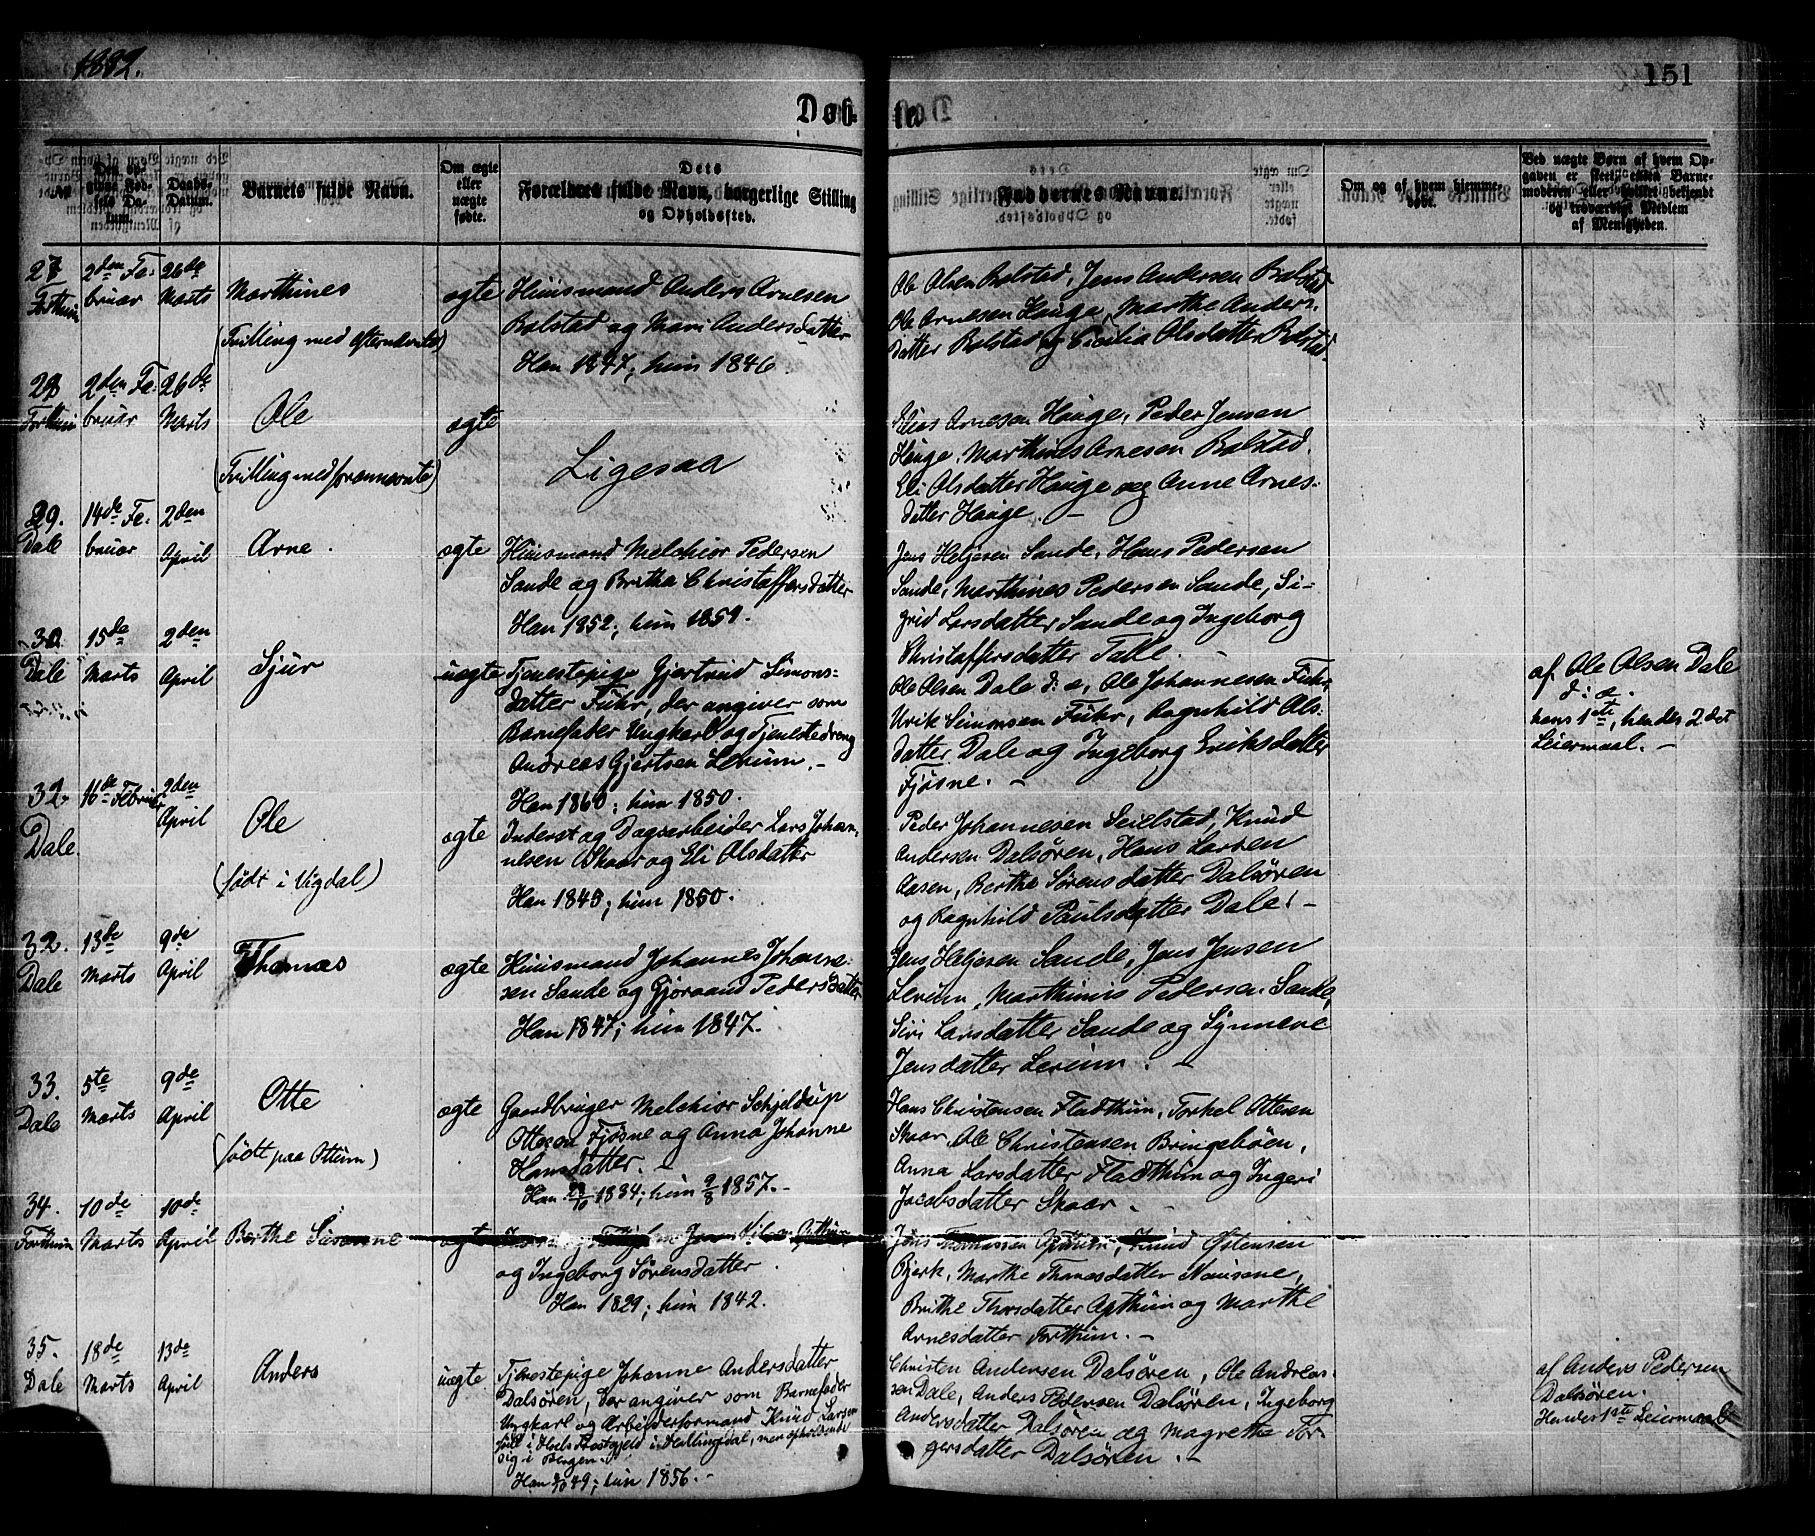 1882.
151
Døb-
te
No
Den op-
givne Fød-
sels Da-
tum.
Daabs-
Datum.
Barnets fulde Navn.
Om ægte
eller
uægte
fødte.
Dets
Forældres fulde Navn, borgerlige Stilling
og Opholdssted.
Faddernes Navne.
Om og af hvem hjemme-
døbt.
Ved uægte Børn af hvem Op-
gaven er skeet, enten Barne-
moderen eller hvilket bekjendt
og troværdigt Medlem
af Menigheden.
27
Forthun
2den Fe-
bruar
26de
Marts
Marthines
(Tvilling med efternævnte)
ægte
Huusmand Anders Arnesen
Bolstad og Mari Andersdatter
Han 1847; hun 1846.
Ole Olsen Bolstad, Jens Andersen Bolstad
Ole Arnesen Hauge, Marthe Anders-
datter Bolstad og Cicilia Olsdatter Bolstad
28
Forthun
2den Fe-
bruar
26de
Marts
Ole
(Tvilling med forannævnte)
ægte
Ligesaa
Elias Arnesen Hauge, Peder Jensen
Hauge, Marthines Arnesen Bolstad,
Eli Olsdatter Hauge og Anne Arnes-
datter Hauge. -
29.
Dale
14de Fe-
bruar
2den
April
Arne.
ægte
Huusmand Melchior Pedersen
Sande og Britha Christaffersdatter
Han 1852; hun 1859.
Jens Heljesen Sande, Hans Pedersen
Sande, Marthines Pedersen Sande, Si-
grid Larsdatter Sande og Ingeborg
Christaffersdatter Talle. -
30.
Dale
15de
Marts
2den
April
Sjur
uægte
Tjenestepige Gjertrud Simons-
datter Fuhr, der angiver som
Barnefader Ungkarl og Tjenestedreng
Andreas Gjertsen Lerum. -
Han 1860; hun 1850.
Ole Olsen Dale d: æ, Ole Johannesen Fuhr
Urik Simonsen Fuhr, Ragnhild Ols-
datter Dale og Ingeborg Eriksdatter
Fjøsne. -
af Ole Olsen Dale
d: æ.
hans 1ste, hendes 2det
Leiermaal. -
32.
Dale.
16de Februar
2den
April
Ole
(født i Vigdal)
ægte
Inderst og Dagsarbeider Lars Johan-
nesen Skaar og Eli Olsdatter
Han 1845; hun 1850.
Peder Johannesen Seielstad, Knud
Andersen Dalsøren, Hans Larsen
Aasen, Berthe Sørensdatter Dalsøren
og Ragnhild Paulsdatter Dale. -
32.
Dale
13de
Marts
9de
April
Thomas
ægte
Huusmand Johannes Johanne-
sen Sande og Gjøraand Pedersdatter
Han 1847; hun 1847.
Jens Heljesen Sande, Jens Jensen
Lerum, Marthinus Pedersen Sande,
Siri Larsdatter Sande og Synneve
Jensdatter Lerum. -
33.
Dale
5te
Marts
9de
April
Otte
(født paa Ottum)
ægte
Gaardbruger Melchior Schjeldrup
Ottesen Fjøsne og Anna Johanne
Hansdatter. -
Han 29/10 1834; hun 9/8 1857. -
Hans Christensen Fladthum, Torkel Ottesen
Skaar, Ole Christensen Bringebøen,
Anna Larsdatter Fladthum og Ingeri
Jacobsdatter Skaar. -
34.
Forthun
10de
Marts
10de
April
Berthe Susanne
ægte
og Ingeborg Sørensdatter
Han 1829; hun 1842.
Jens Thomassen Opthun, Knud Østensen
Bjerk, Marthe Thomasdatter Nausene,
Brithe Thorsdatter Opthun og Marthe
Arnesdatter Forthun. -
35.
Dale
18de
Marts
13de
April
Anders
uægte
Tjenestepige Johanne Andersdatter
Dalsøren, der angiver som Barnefader
Ungkarl og Arbeidsformand Knud Larsen
i Hols Præstegjeld i Hallingdal, men opholdende
sig i Bergen.
hun 1856. -
Christen Andersen Dalsøren, Ole Andreas-
sen Dale, Anders Pedersen Dalsøren, Ingeborg
Andersdatter Dalsøren og Magrethe Tor-
gersdatter Dalsøren. -
af Anders Pedersen
Dalsøren.
Hendes 1ste Leiermaal